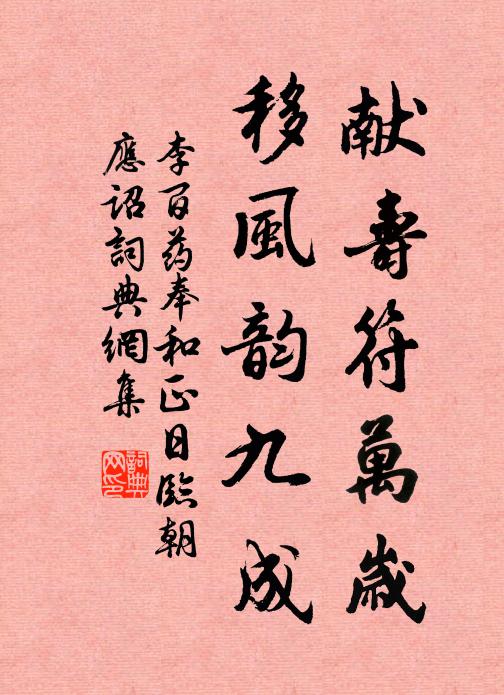 献壽符萬歲
移風韵九成
李百药奉和正日臨朝
應詔詞典網集
詞典
网印